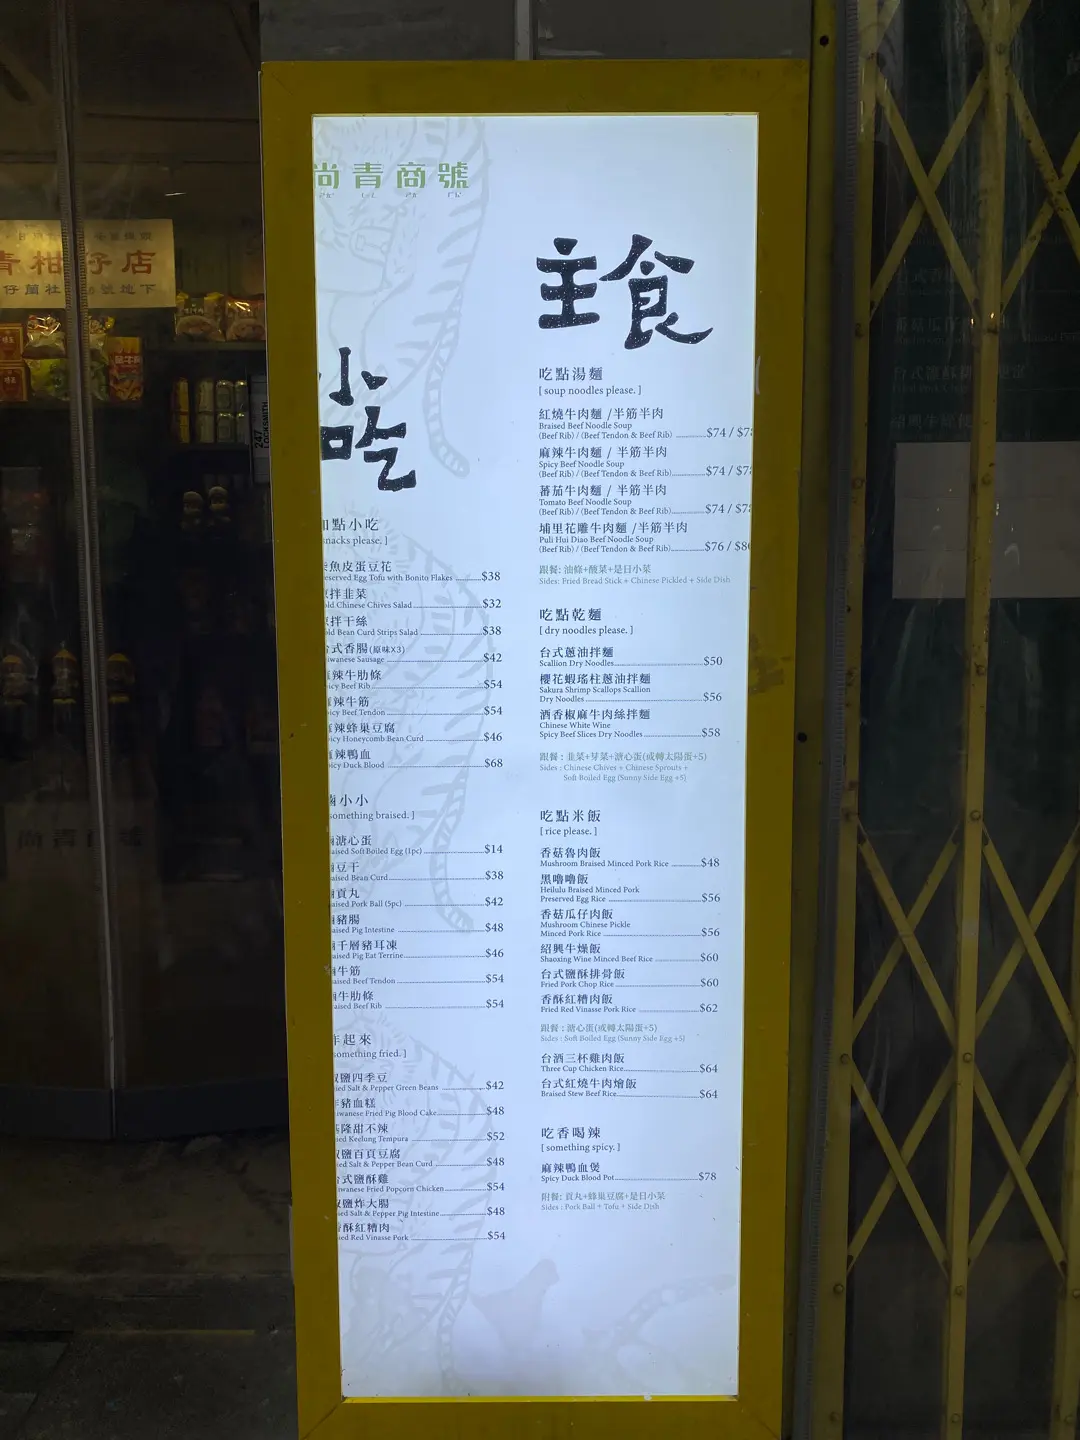 尚青商號
青柑仔店
號地下
247
LOCKSMITH
小吃
點小吃
snacks please. ]
魚皮蛋豆花
eserved Egg Tofu with Bonito Flakes ........$38
拌韭菜
old Chinese Chives Salad........$32
拌干絲
old Bean Curd Strips Salad........$38
式香腸(原味X3)
iwanese Sausage........$42
辣牛肋條
icy Beef Rib........$54
辣牛筋
icy Beef Tendon........$54
辣蜂巢豆腐
icy Honeycomb Bean Curd........$46
辣鴨血
icy Duck Blood........$68
小小
something braised. ]
溏心蛋
aised Soft Boiled Egg (1pc)........$14
豆干
aised Bean Curd........$38
貢丸
aised Pork Ball (5pc)........$42
豬腸
aised Pig Intestine........$48
千層豬耳凍
aised Pig Eat Terrine........$46
牛筋
aised Beef Tendon........$54
牛肋條
aised Beef Rib........$54
起來
something fried. ]
鹽四季豆
ied Salt & Pepper Green Beans........$42
豬血糕
iwanese Fried Pig Blood Cake........$48
隆甜不辣
ied Keelung Tempura........$52
鹽百頁豆腐
ied Salt & Pepper Bean Curd........$48
式鹽酥雞
iwanese Fried Popcorn Chicken........$54
鹽炸大腸
ied Salt & Pepper Pig Intestine........$48
酥紅糟肉
ied Red Vinasse Pork........$54
主食
吃點湯麵
[ soup noodles please. ]
紅燒牛肉麵 /半筋半肉
Braised Beef Noodle Soup
(Beef Rib) / (Beef Tendon & Beef Rib)........$74 / $78
麻辣牛肉麵 / 半筋半肉
Spicy Beef Noodle Soup
(Beef Rib) / (Beef Tendon & Beef Rib)........$74 / $78
蕃茄牛肉麵 / 半筋半肉
Tomato Beef Noodle Soup
(Beef Rib) / (Beef Tendon & Beef Rib)........$74 / $78
埔里花雕牛肉麵 /半筋半肉
Puli Hui Diao Beef Noodle Soup
(Beef Rib) / (Beef Tendon & Beef Rib)........$76 / $80
跟餐: 油條+酸菜+是日小菜
Sides: Fried Bread Stick + Chinese Pickled + Side Dish
吃點乾麵
[ dry noodles please. ]
台式蔥油拌麵
Scallion Dry Noodles........$50
櫻花蝦瑤柱蔥油拌麵
Sakura Shrimp Scallops Scallion
Dry Noodles........$56
酒香椒麻牛肉絲拌麵
Chinese White Wine
Spicy Beef Slices Dry Noodles........$58
跟餐 : 韭菜+芽菜+溏心蛋(或轉太陽蛋+5)
Sides : Chinese Chives + Chinese Sprouts +
Soft Boiled Egg (Sunny Side Egg +5)
吃點米飯
[ rice please. ]
香菇魯肉飯
Mushroom Braised Minced Pork Rice........$48
黑嚕嚕飯
Heilulu Braised Minced Pork
Preserved Egg Rice........$56
香菇瓜仔肉飯
Mushroom Chinese Pickle
Minced Pork Rice........$56
紹興牛燥飯
Shaoxing Wine Minced Beef Rice........$60
台式鹽酥排骨飯
Fried Pork Chop Rice........$60
香酥紅糟肉飯
Fried Red Vinasse Pork Rice........$62
跟餐 : 溏心蛋(或轉太陽蛋+5)
Sides : Soft Boiled Egg (Sunny Side Egg +5)
台酒三杯雞肉飯
Three Cup Chicken Rice........$64
台式紅燒牛肉燴飯
Braised Stew Beef Rice........$64
吃香喝辣
[ something spicy. ]
麻辣鴨血煲
Spicy Duck Blood Pot........$78
附餐: 貢丸+蜂巢豆腐+是日小菜
Sides : Pork Ball + Tofu + Side Dish